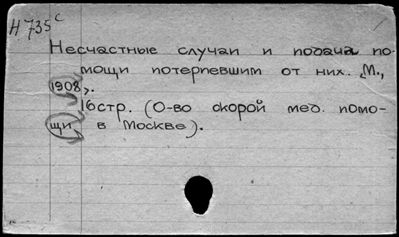 Н 735 с
Несчастные случаи и подача по-
мощи потерпевшим от них. М.,
1908,.
16 стр. (О-во скорой мед. помо-
щи в Москве).